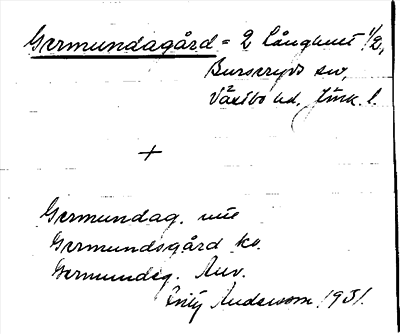 Germundagård = 2 Långhult 1/2,
Burseryds sn,
Västbo hd, Jönk. l.
+
Germundag. mtl
Germundsgård ko.
Germundsg. Anv.
Andersson 1931.